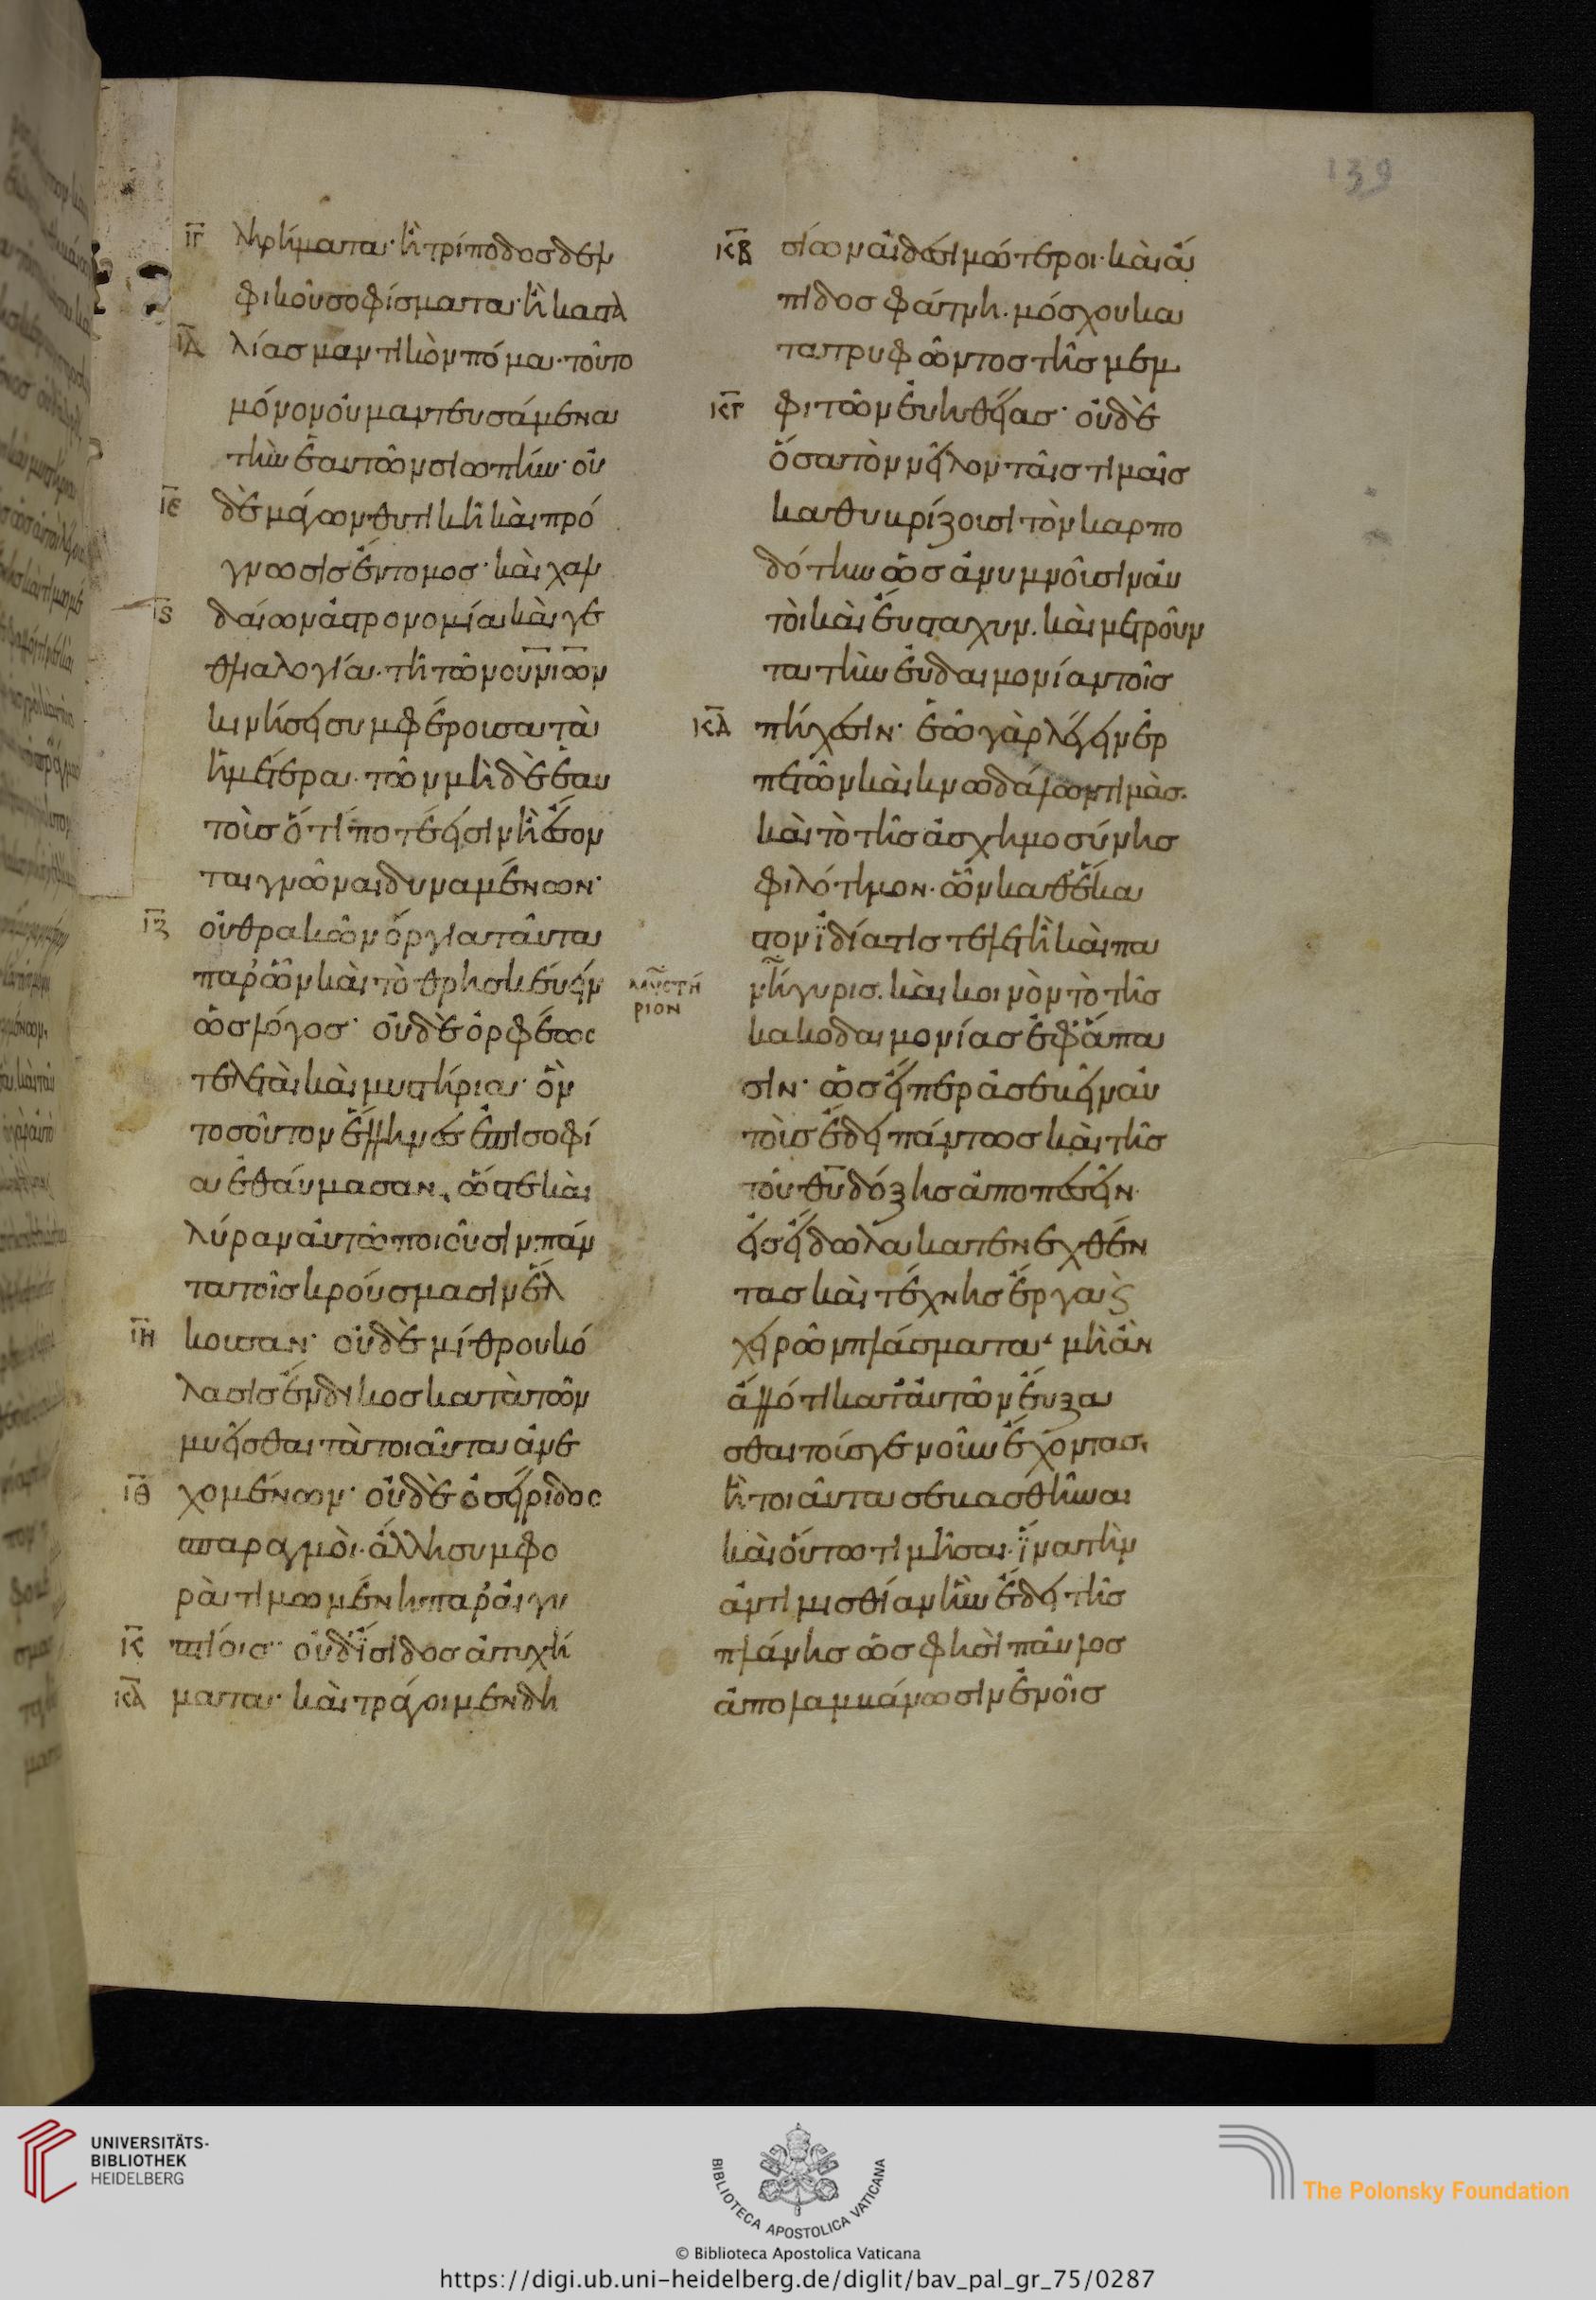 ΙΓ ληρήματα· ἢ τρίποδος δελ
φικοῦ σοφίσματα· ἢ καστα
ΙΔ λίας μαντικὸν πόμα· τοῦτο
μόνον οὐ μαντευσάμενα
τὴν ἑαυτῶν σιωπήν· οὐ
ΙΕ δὲ μάγων θυτικὴ καὶ πρό
γνωσις ἔντομος· καὶ χαλ
Ις δαίων ἀστρονομία καὶ γε
θλιαλογία· τῆ τῶν οὐνιῶν
κινήσει συμφέρουσα τὰ
ἡμέτερα· τῶν μὴ δὲ ἑαυ
τοὺς ὅτί ποτέ εἰσιν ἢ ἔσον
ται γνῶναι δυναμένων·
ΙΖ οὐ θρακῶν ὄργια ταῦτα
παρ' ὧν καὶ τὸ θρησκεύειν
ὡς λόγος· οὐδὲ ὀρφέως
τελεταὶ καὶ μυστήρια· ὃν
τοσοῦτον ἕλληνες ἐπὶ σοφί
α ἐθαύμασαν, ὥστε καὶ
λύραν αὐτῶ ποιοῦσιν πάν
τα τοῖς κρούσμασιν ἕλ
ΙΗ κουσαν· οὐδὲ μίθρου κό
λασις ἔνδικος κατὰ τῶν
μυεῖσθαι τὰ τοιαῦτα ἀνε
ΙΘ χομένων· οὐδὲ ὀσείριδος
σπαραγμοὶ· ἄλλη συμφο
ρὰ τιμωμένη παρ' αἰγυ
Κ πτίοις· οὐδ' ἴσιδος ἀτυχή
ΚΑ ματα· καὶ τράγοι μενδη
ΚΒ σίων αἰδεσιμώτεροι· καὶ ἄ
πιδος φάτνη· μόσχου κα
τατρυφῶντος τῆς μεμ
ΚΓ φιτῶν εὐηθείας· οὐδὲ
ὅσα τὸν νεῖλον ταῖς τιμαῖς
καθυβρίζουσι τὸν καρπο
δότην ὡς ἀνυμνοῦσιν αὐ
τοὶ καὶ εὔσταχυν· καὶ μετροῦν
τα τὴν εὐδαιμονίαν τοῖς
ΚΔ πήχεσιν· ἐῶ γὰρ λέγειν ἑρ
πετῶν καὶ κνωδάλων τιμὰς·
καὶ τὸ τῆς ἀσχημοσύνης
φιλότιμον· ὧν καθ' ἕκα
στον ἰδία τις τελετὴ καὶ πα
ΜΥΣΤΗ
ΡΙΟΝ
νήγυρις· καὶ κοινὸν τὸ τῆς
κακοδαιμονίας ἐφ' ἅπα
σιν· ὡς εἴπερ ἀσεβεῖν αὐ
τοὺς ἔδει πάντως καὶ τῆς
τοῦ θυ δόξης ἀποπεσεῖν
εἰς εἴδωλα κατενεχθέν
τας καὶ τέχνης ἔργα κς
χειρῶν πλάσματα· μὴ ἂν
ἄλλό τι κατ' αὐτῶν εὔξα
σθαι τούς γε νοῦν ἔχοντας,
ἢ τοιαῦτα σεβασθῆναι
καὶ οὕτω τιμῆσαι· ἵνα τὴν
ἀντιμισθίαν ἣν ἔδει τῆς
πλάνης ὡς φησὶ παῦλος
ἀπολαμβάνωσιν ἐν οἷς
139
UNIVERSITÄTS-
BIBLIOTHEK
HEIDELBERG
BIBLIOTECA APOSTOLICA VATICANA
© Biblioteca Apostolica Vaticana
The Polonsky Foundation
https://digi.ub.uni-heidelberg.de/diglit/bav_pal_gr_75/0287